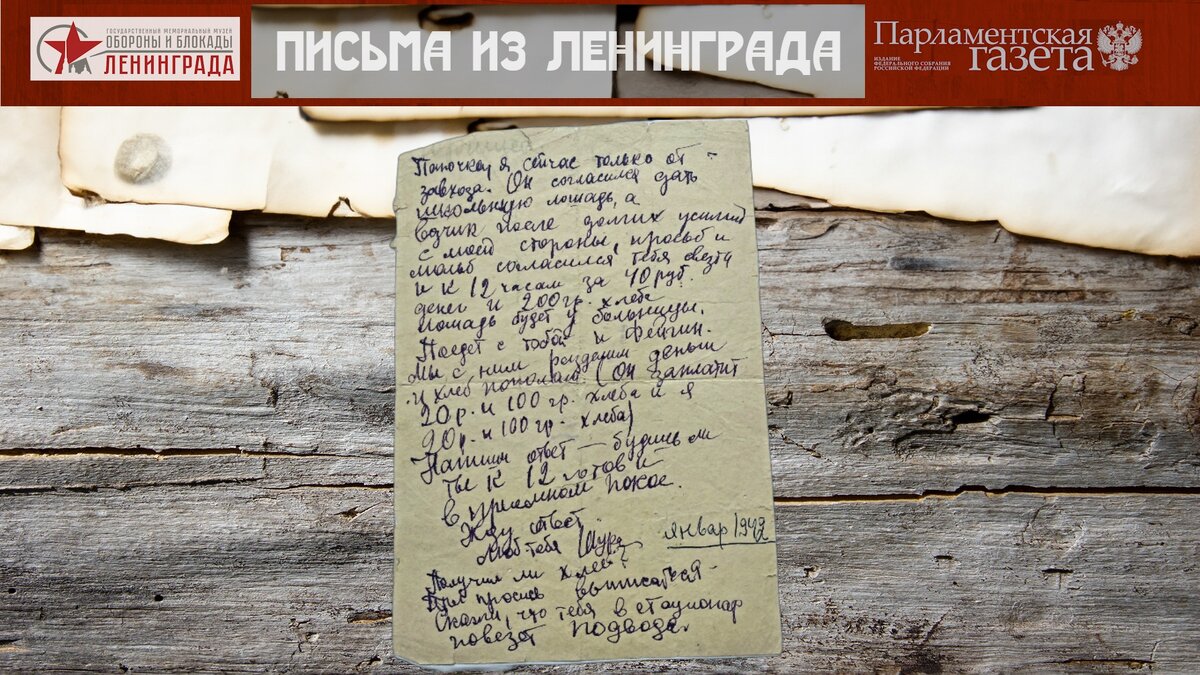 ГОСУДАРСТВЕННЫЙ МЕМОРИАЛЬНЫЙ МУЗЕЙ
ОБОРОНЫ И БЛОКАДЫ
ЛЕНИНГРАДА
ПИСЬМА ИЗ ЛЕНИНГРАДА
Парламентская
газета
ИЗДАНИЕ
ФЕДЕРАЛЬНОГО СОБРАНИЯ
РОССИЙСКОЙ ФЕДЕРАЦИИ
я сейчас только от
завхоза. Он согласился дать
школьную лошадь, а
после долгих усилий
с моей стороны, просьб и
мольб согласился тебя свезти
и к 12 часам за 40 руб.
денег и 200 гр. хлеба
лошадь будет у больницы.
Поедет с тобой и Фейгин.
Мы с ним разделим деньги
и хлеб пополам. (Он заплатит
20 р. и 100 гр. хлеба и я
20 р. и 100 гр. хлеба)
Напиши ответ — будешь ли
ты к 12 готов и
в приемном покое.
Жду ответ
Люб тебя Шура
январ 1942
Получил ли хлеб?
просись выписаться
Скажи, что тебя в стационар
повезет подвода.